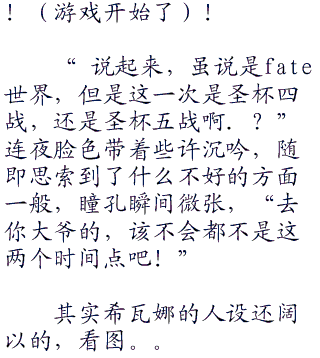 ！（游戏开始了）！
“ 说起来，虽说是fate
世界，但是这一次是圣杯四
战，还是圣杯五战啊．？”
连夜脸色带着些许沉吟，随
即思索到了什么不好的方面
一般，瞳孔瞬间微张，“去
你大爷的，该不会都不是这
两个时间点吧！”
其实希瓦娜的人设还阔
以的，看图。。